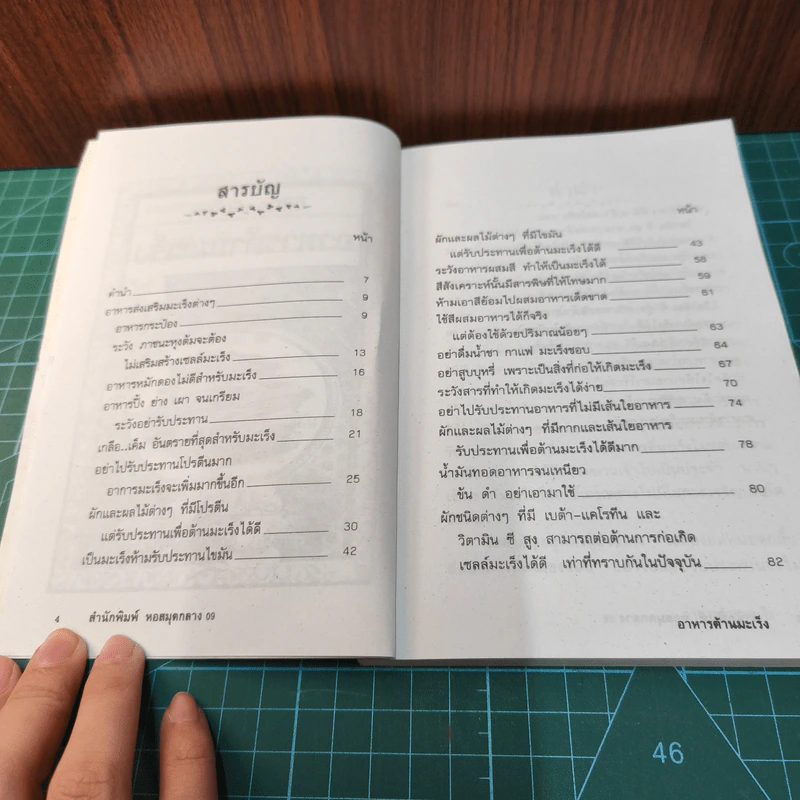 สารบัญ
หน้า
คำนำ 7
อาหารส่งเสริมมะเร็งต่างๆ 9
อาหารกระป๋อง 9
ระวัง ภาชนะหุงต้มจะต้อง
ไม่เสริมสร้างเซลล์มะเร็ง 13
อาหารหมักดองไม่ดีสำหรับมะเร็ง 16
อาหารปิ้ง ย่าง เผา จนเกรียม
ระวังอย่ารับประทาน 18
เกลือ..เค็ม อันตรายที่สุดสำหรับมะเร็ง 21
อย่าไปรับประทานโปรตีนมาก
อาการมะเร็งจะเพิ่มมากขึ้นอีก 25
ผักและผลไม้ต่างๆ ที่มีโปรตีน
แต่รับประทานเพื่อต้านมะเร็งได้ดี 30
เป็นมะเร็งห้ามรับประทานไขมัน 42
4 สำนักพิมพ์ หอสมุดกลาง 09
หน้า
ผักและผลไม้ต่างๆ ที่มีไขมัน
แต่รับประทานเพื่อต้านมะเร็งได้ดี 43
ระวังอาหารผสมสี ทำให้เป็นมะเร็งได้ 58
สีสังเคราะห์นั้นมีสารพิษที่ให้โทษมาก 59
ห้ามเอาสีย้อมไปผสมอาหารเด็ดขาด 61
ใช้สีผสมอาหารได้ก็จริง
แต่ต้องใช้ด้วยปริมาณน้อยๆ 63
อย่าดื่มน้ำชา กาแฟ มะเร็งชอบ 64
อย่าสูบบุหรี่ เพราะเป็นสิ่งที่ก่อให้เกิดมะเร็ง 67
ระวังสารที่ทำให้เกิดมะเร็งได้ง่าย 70
อย่าไปรับประทานอาหารที่ไม่มีเส้นใยอาหาร 74
ผักและผลไม้ต่างๆ ที่มีกากและเส้นใยอาหาร
รับประทานเพื่อต้านมะเร็งได้ดีมาก 78
น้ำมันทอดอาหารจนเหนียว
ข้น ดำ อย่าเอามาใช้ 80
ผักชนิดต่างๆ ที่มี เบต้า-แคโรทีน และ
วิตามิน ซี สูง สามารถต่อต้านการก่อเกิด
เซลล์มะเร็งได้ดี เท่าที่ทราบกันในปัจจุบัน 82
อาหารต้านมะเร็ง
46